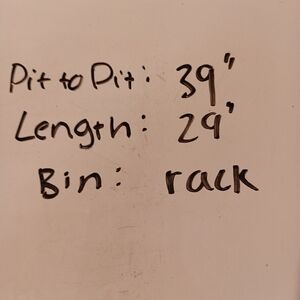 Pit to Pit: 39"
Length: 29"
Bin: rack